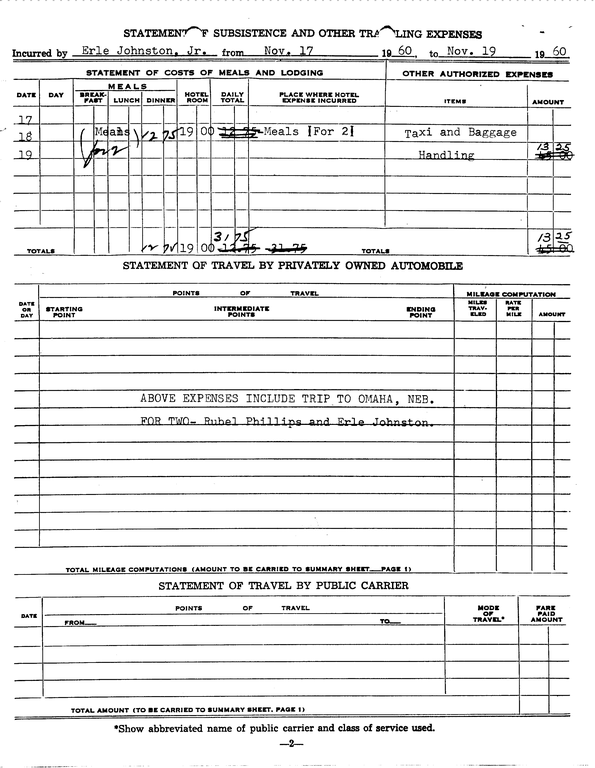 STATEMENT F SUBSISTENCE AND OTHER TRA LING EXPENSES
Incurred by Erle Johnston, Jr. from Nov. 17 19 60, to Nov. 19 19 60
STATEMENT OF COSTS OF MEALS AND LODGING OTHER AUTHORIZED EXPENSES
MEALS
DATE DAY BREAK-FAST LUNCH DINNER HOTEL ROOM DAILY TOTAL PLACE WHERE HOTEL EXPENSE INCURRED ITEMS AMOUNT
17
18 (Meals) 12 75 19 00 12 75 Meals [For 2] Taxi and Baggage
19 for 2 Handling 13 25
45 00
31 75 13 25
TOTALS 12 75 19 00 12.75 31.75 TOTALS 45 00
STATEMENT OF TRAVEL BY PRIVATELY OWNED AUTOMOBILE
POINTS OF TRAVEL MILEAGE COMPUTATION
DATE OR DAY STARTING POINT INTERMEDIATE POINTS ENDING POINT MILES TRAV-ELED RATE PER MILE AMOUNT
ABOVE EXPENSES INCLUDE TRIP TO OMAHA, NEB.
FOR TWO- Rubel Phillips and Erle Johnston.
TOTAL MILEAGE COMPUTATIONS (AMOUNT TO BE CARRIED TO SUMMARY SHEET—PAGE 1)
STATEMENT OF TRAVEL BY PUBLIC CARRIER
DATE POINTS OF TRAVEL MODE OF TRAVEL* FARE PAID AMOUNT
FROM— TO—
TOTAL AMOUNT (TO BE CARRIED TO SUMMARY SHEET, PAGE 1)
*Show abbreviated name of public carrier and class of service used.
—2—